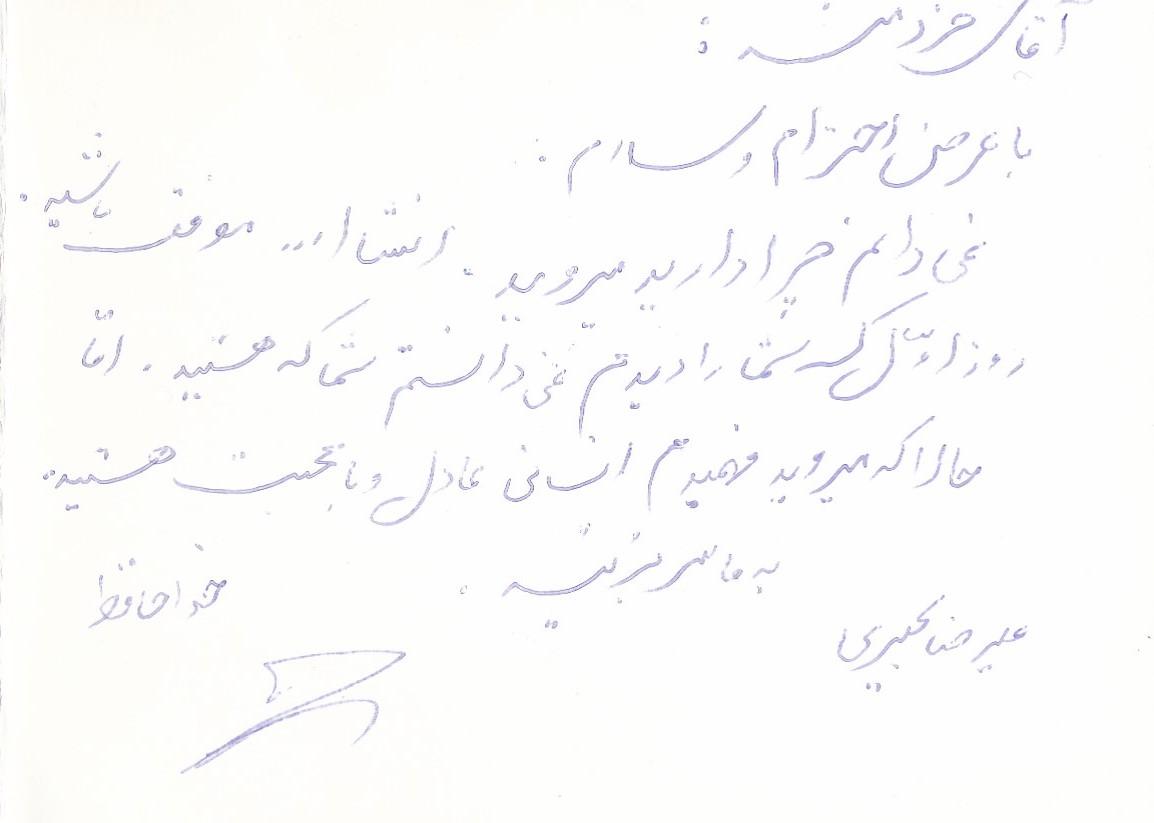 آقای خردمند :
با عرض احترام و سلام .
نمی دانم چرا دارید میروید . انشاا... موفق باشید .
روز اوّل که شما را دیدم نمی دانستم شما که هستید . امّا
حالا که میروید فهمیدم انسانی عادل و با محبت هستید .
به ما سر بزنید .
خداحافظ
علیرضا